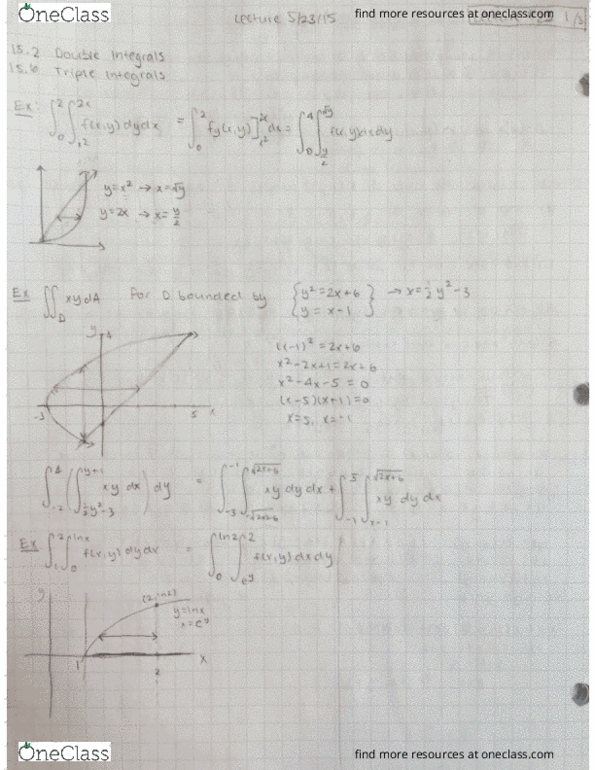 OneClass
find more resources at oneclass.com
Lecture 5/23/15
1/2
15.2 Double Integrals
15.6 Triple Integrals
Ex: ∫₀² ∫_{x²}^{2x} f(x,y) dy dx = ∫₀² fy(x,y)]_{x²}^{2x} dx = ∫₀⁴ ∫_{y/2}^{√y} f(x,y) dx dy
y = x² → x = √y
y = 2x → x = y/2
Ex ∬_D xy dA for D bounded by { y² = 2x + 6 } → x = ½y² - 3
{ y = x - 1 }
y 4
(x-1)² = 2x+6
x² - 2x + 1 = 2x + 6
x² - 4x - 5 = 0
(x-5)(x+1) = 0
x = 5, x = -1
-3 5 x
∫_{-2}^{4} ( ∫_{½y²-3}^{y+1} xy dx ) dy = ∫_{-3}^{-1} ∫_{-√(2x+6)}^{√(2x+6)} xy dy dx + ∫_{-1}^{5} ∫_{x-1}^{√(2x+6)} xy dy dx
Ex ∫₁² ∫₀^{lnx} f(x,y) dy dx = ∫₀^{ln2} ∫_{e^y}^{2} f(x,y) dx dy
y (2, ln2)
y = lnx
x = e^y
1 2 x
OneClass
find more resources at oneclass.com